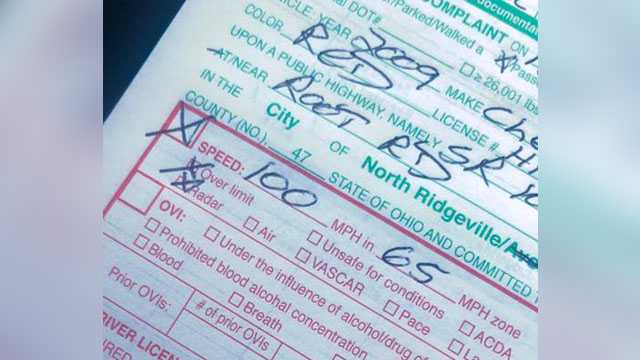 COMPLAINT
documentati
al DOT#
/Parked/Walked a
ON
VEHICLE: YEAR 2009 MAKE Che
≥ 26,001 lbs
COLOR RED LICENSE #
UPON A PUBLIC HIGHWAY, NAMELY
AT/NEAR ROOT RD SR
IN THE City OF North Ridgeville/
COUNTY (NO.) 47 STATE OF OHIO AND COMMITTED
SPEED: 100 MPH in 65 MPH zone
Over limit Unsafe for conditions ACDA
Radar Air VASCAR Pace La
OVI: Under the influence of alcohol/drug o
Prohibited blood alcohol concentration
Blood Breath
Prior OVIs: # of prior OVIs
RIVER LICEN